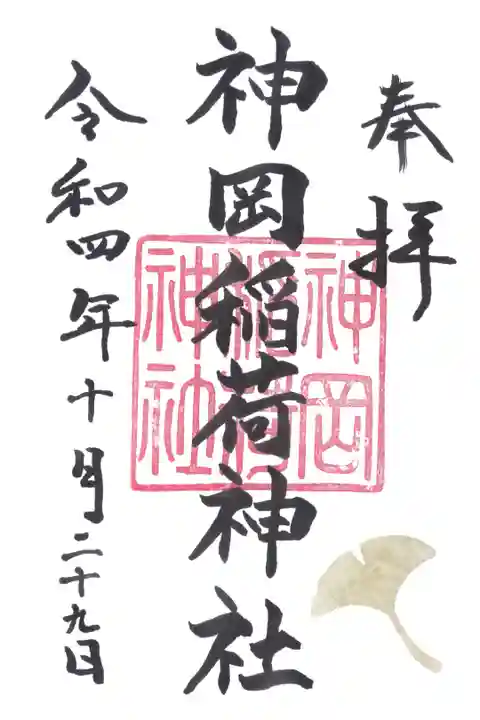 奉拝
神岡稲荷神社
神岡稲荷神社
令和四年十月二十九日